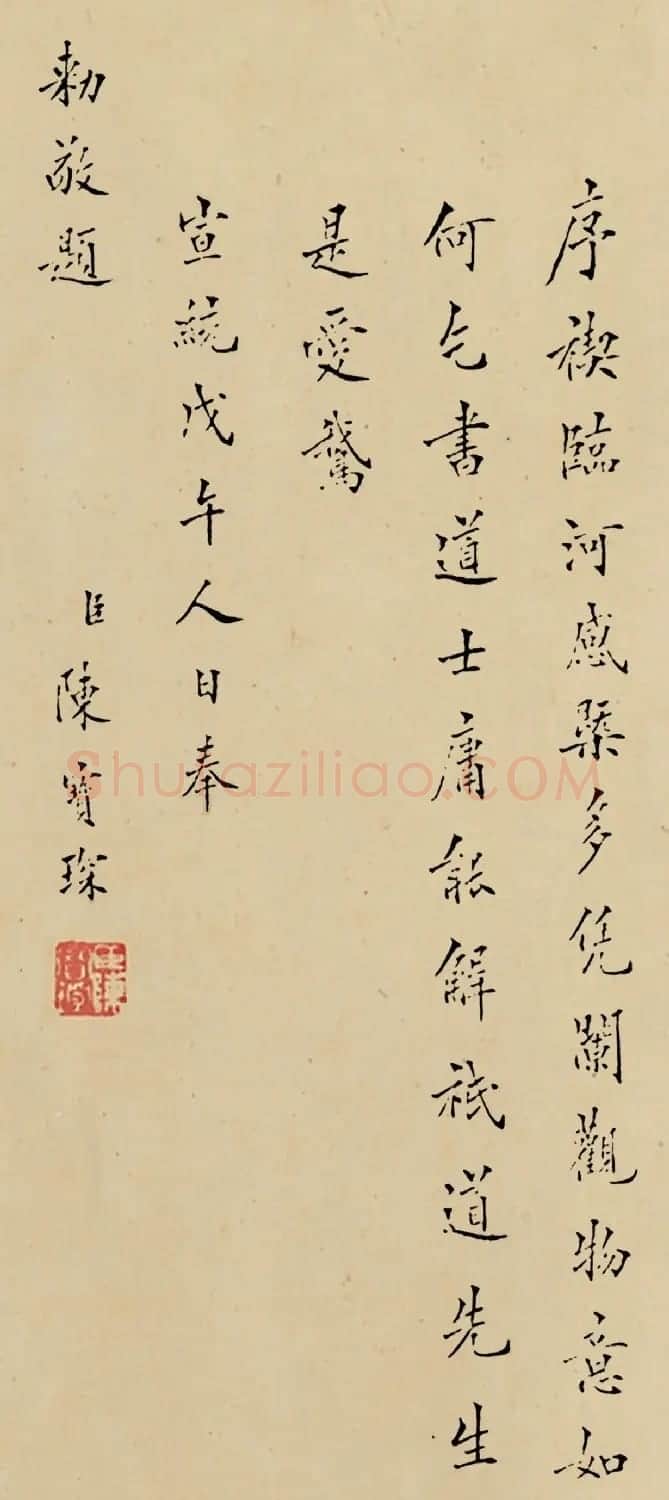 序禊臨河感槩多凭闌觀物意如
何乞書道士庸能解祗道先生
是愛鵞
宣統戊午人日奉
勅敬題
臣陳寶琛
臣陳寶琛
Shufaziliao.COM